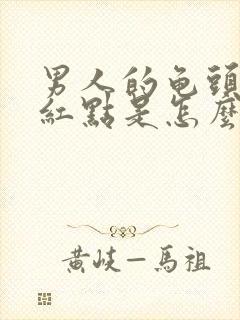 男人的龟頭
紅點是怎麼
黄岐－馬祖